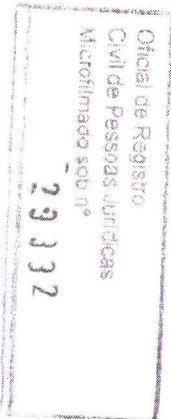 Oficial de Registro
Civil de Pessoas Jurídicas
Microfilmado sob nº
29332